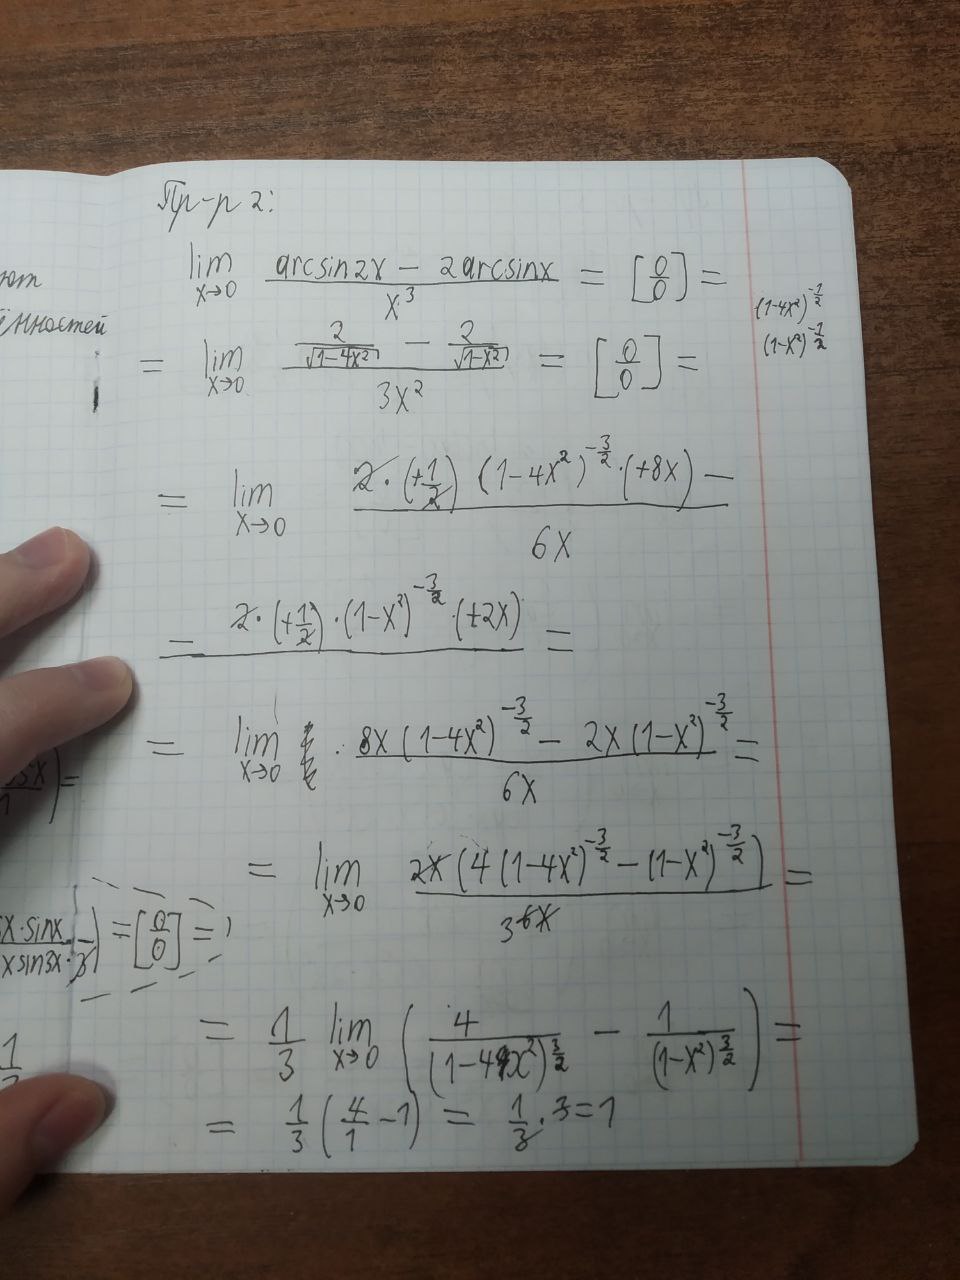 Пр-р 2:
lim x→0 (arcsin2x − 2arcsinx)/x³ = [0/0] =
(1-4x²)^(-1/2)
(1-x²)^(-1/2)
= lim x→0 (2/√(1-4x²) − 2/√(1-x²))/(3x²) = [0/0] =
= lim x→0 2·(+1/2) (1-4x²)^(-3/2)·(+8x) −
6x
− 2·(+1/2)·(1-x²)^(-3/2)·(+2x) =
= lim x→0 · (8x(1-4x²)^(-3/2) − 2x(1-x²)^(-3/2))/(6x) =
= lim x→0 2x(4(1-4x²)^(-3/2) − (1-x²)^(-3/2))/(3 6x) =
= 1/3 lim x→0 (4/(1-4x²)^(3/2) − 1/(1-x²)^(3/2)) =
= 1/3 (4/1 − 1) = 1/3 · 3 = 1
ённостей
x·sinx
xsin3x·3) = [0/0] =